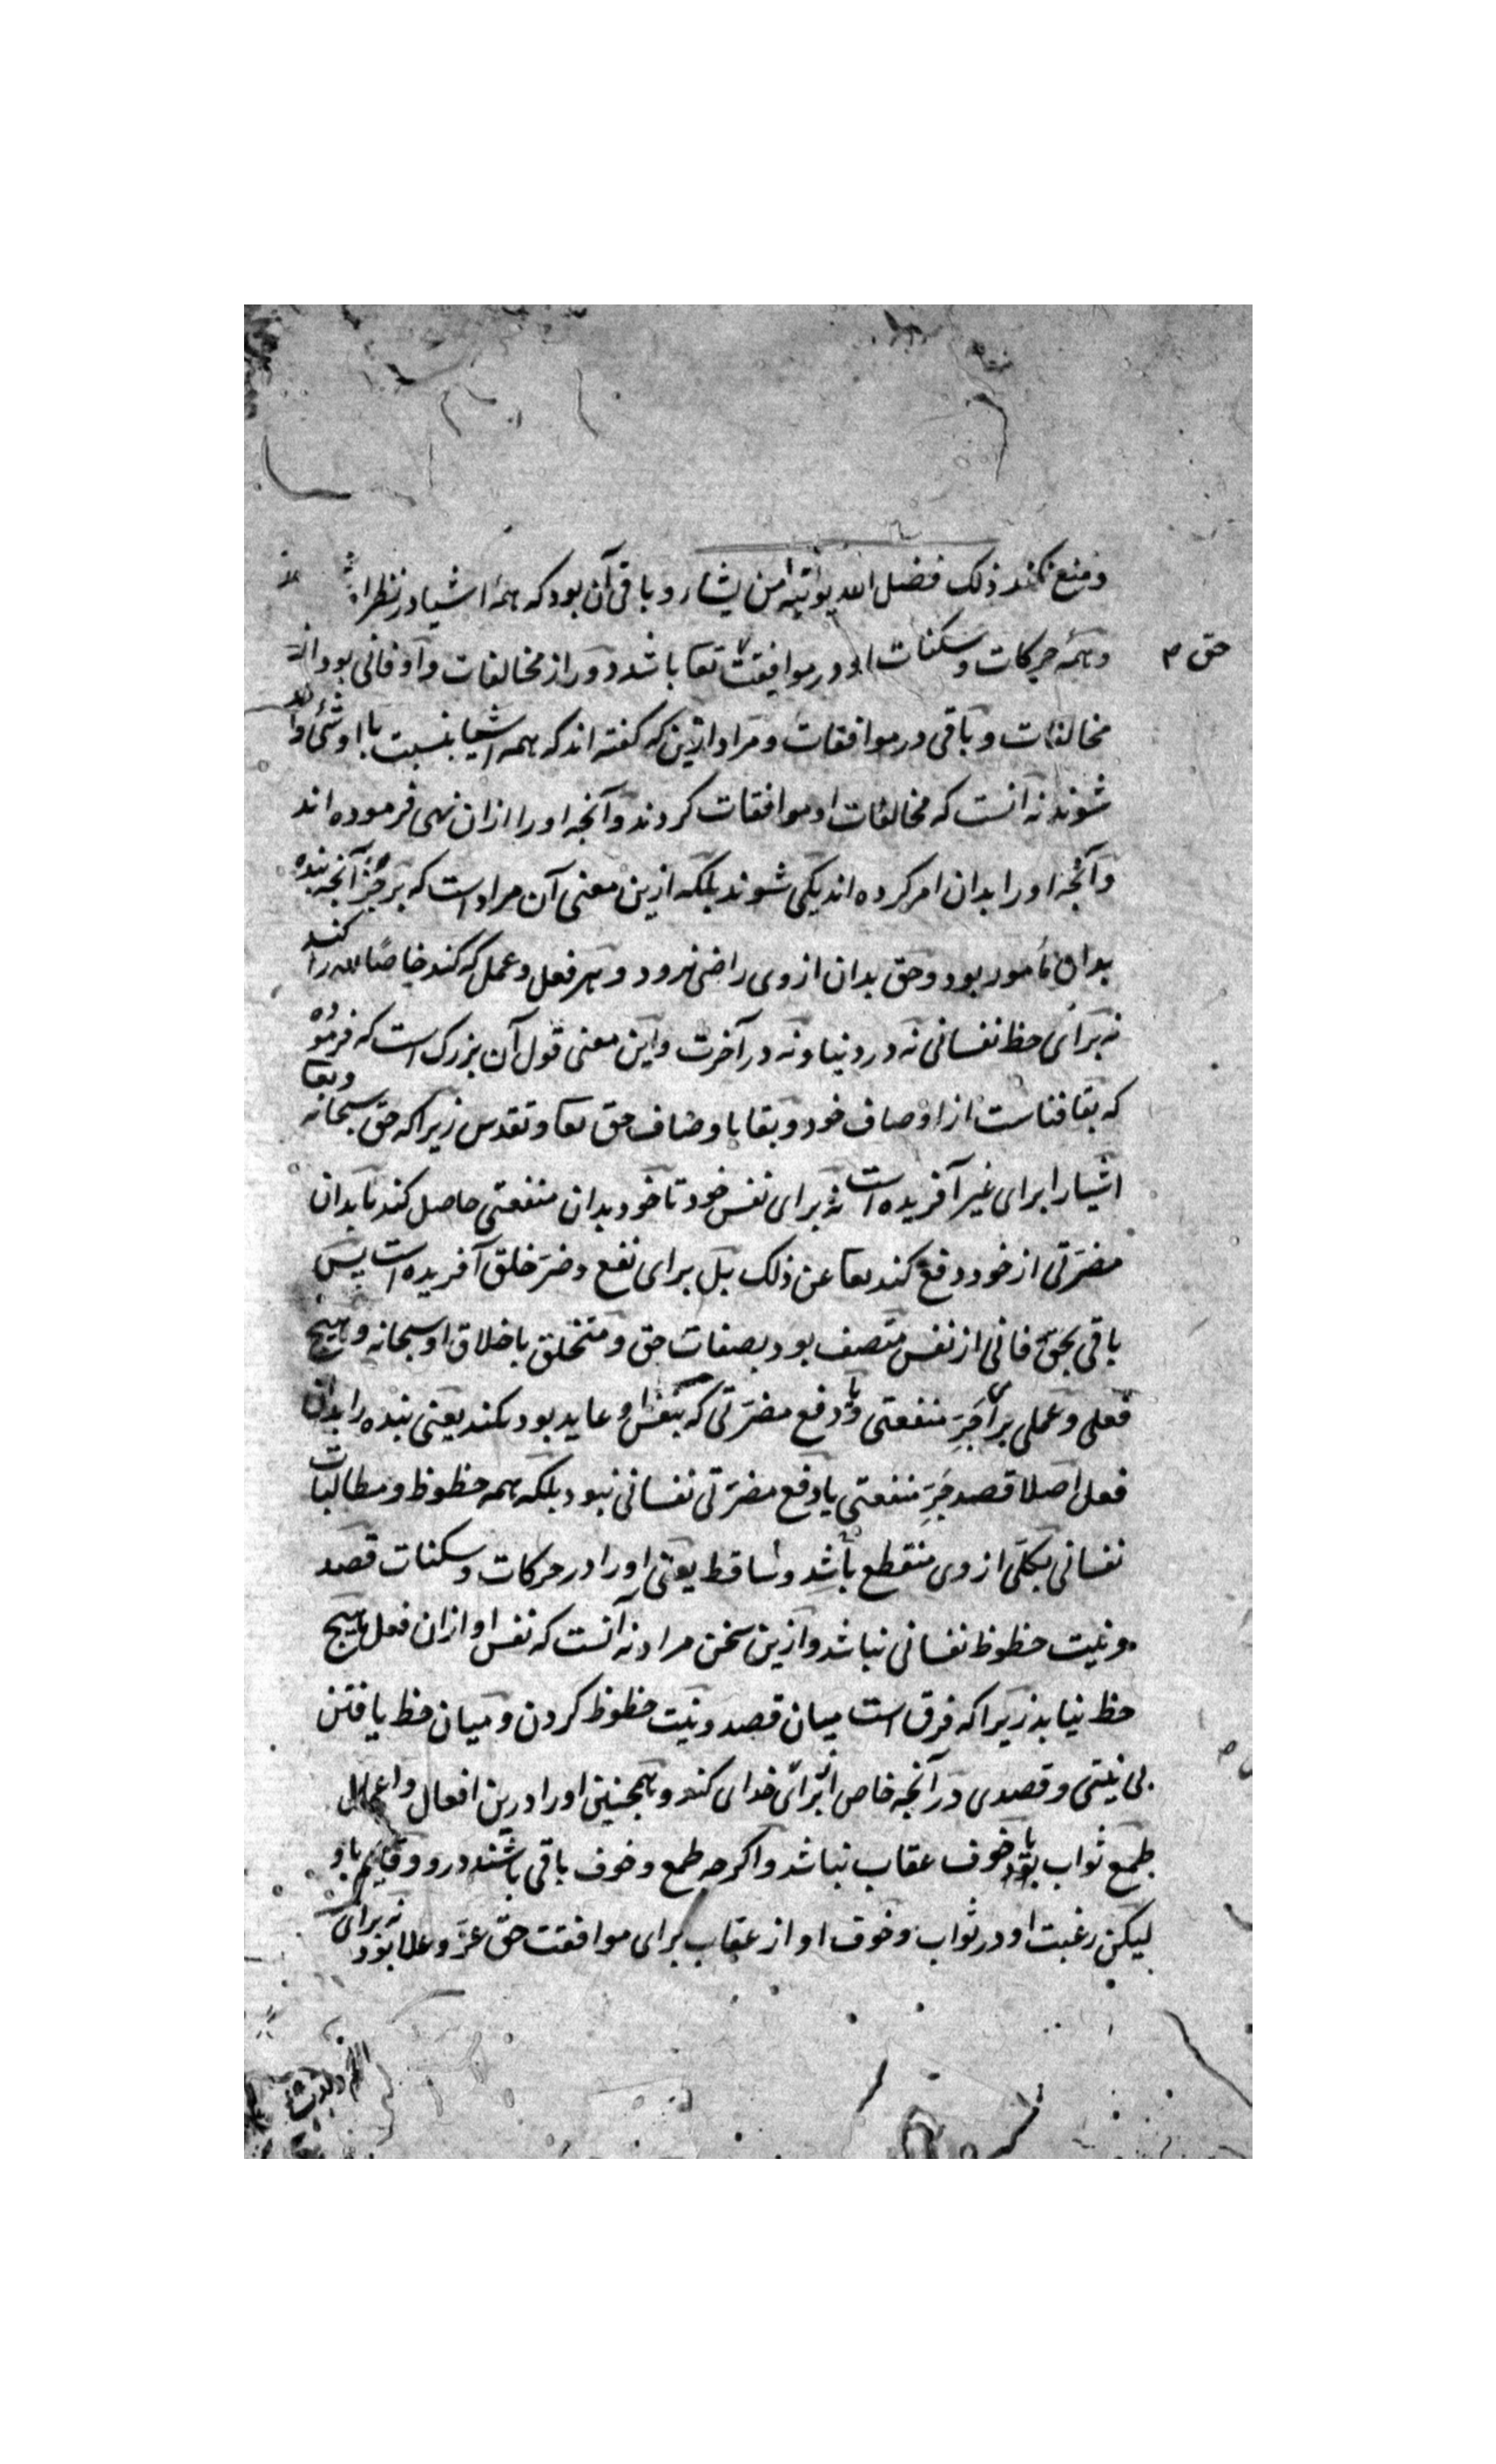 ومنع نکند ذلک فضل الله یؤتیه من یشاء و باقی آن بود که همه اشیا در نظر او
وهمه حرکات و سکنات او در موافقت تعا باشد دور از مخالفات و او فانی بود از
حق م
مخالفات و باقی در موافقات و مراد ازین که گفته اند که همه اشیا بنسبت با او شئ واحد
شوند نه آنست که مخالفات او موافقات کردند و آنچه او را ازان نهی فرموده اند
و آنچه او را بدان امر کرده اند یکی شوند بلکه ازین معنی آن مراد است که بر جز آنچه بنده
بدان مأمور بود و حق بدان از وی راضی نرود و هر فعل و عمل که کند خاصا لله را کند
نه برای حظ نفسانی نه در دنیا و نه در آخرت و این معنی قول آن بزرک است که فرموده
که بقا فناست از اوصاف خود و بقا با وصاف حق تعا و تقدس زیرا که حق سبحانه وتعا
اشیا را برای غیر آفریده است نه برای نفس خود تا خود بدان منفعتی حاصل کند یا بدان
مضرتی از خود دفع کند تعا عن ذلک بل برای نفع و ضر خلق آفریده است پس
باقی بحق فانی از نفس متصف بود بصفات حق و متخلق باخلاق او سبحانه و هیچ
فعلی و عملی برای جر منفعتی و یا دفع مضرتی که بنفس او عاید بود نکند یعنی بنده را بدان
فعل اصلا قصد جر منفعتی یا دفع مضرتی نفسانی نبود بلکه همه حظوظ و مطالبات
نفسانی بکلی از وی منقطع باشد و ساقط یعنی او را در حرکات و سکنات قصد
و نیت حظوظ نفسانی نباشد و ازین سخن مراد نه آنست که نفس او ازان فعل هیچ
حظ نیابد زیرا که فرق است میان قصد و نیت حظوظ کردن و میان حظ یافتن
بی نیتی و قصدی در آنچه خاص از برای خدای کند و همچنین او را درین افعال و اعمال
طمع ثواب یا خوف عقاب نباشد و اکرچه طمع و خوف باقی باشند درو و قایم باو
لیکن رغبت او در ثواب و خوف او از عقاب برای موافقت حق عز و علا بود نه برای